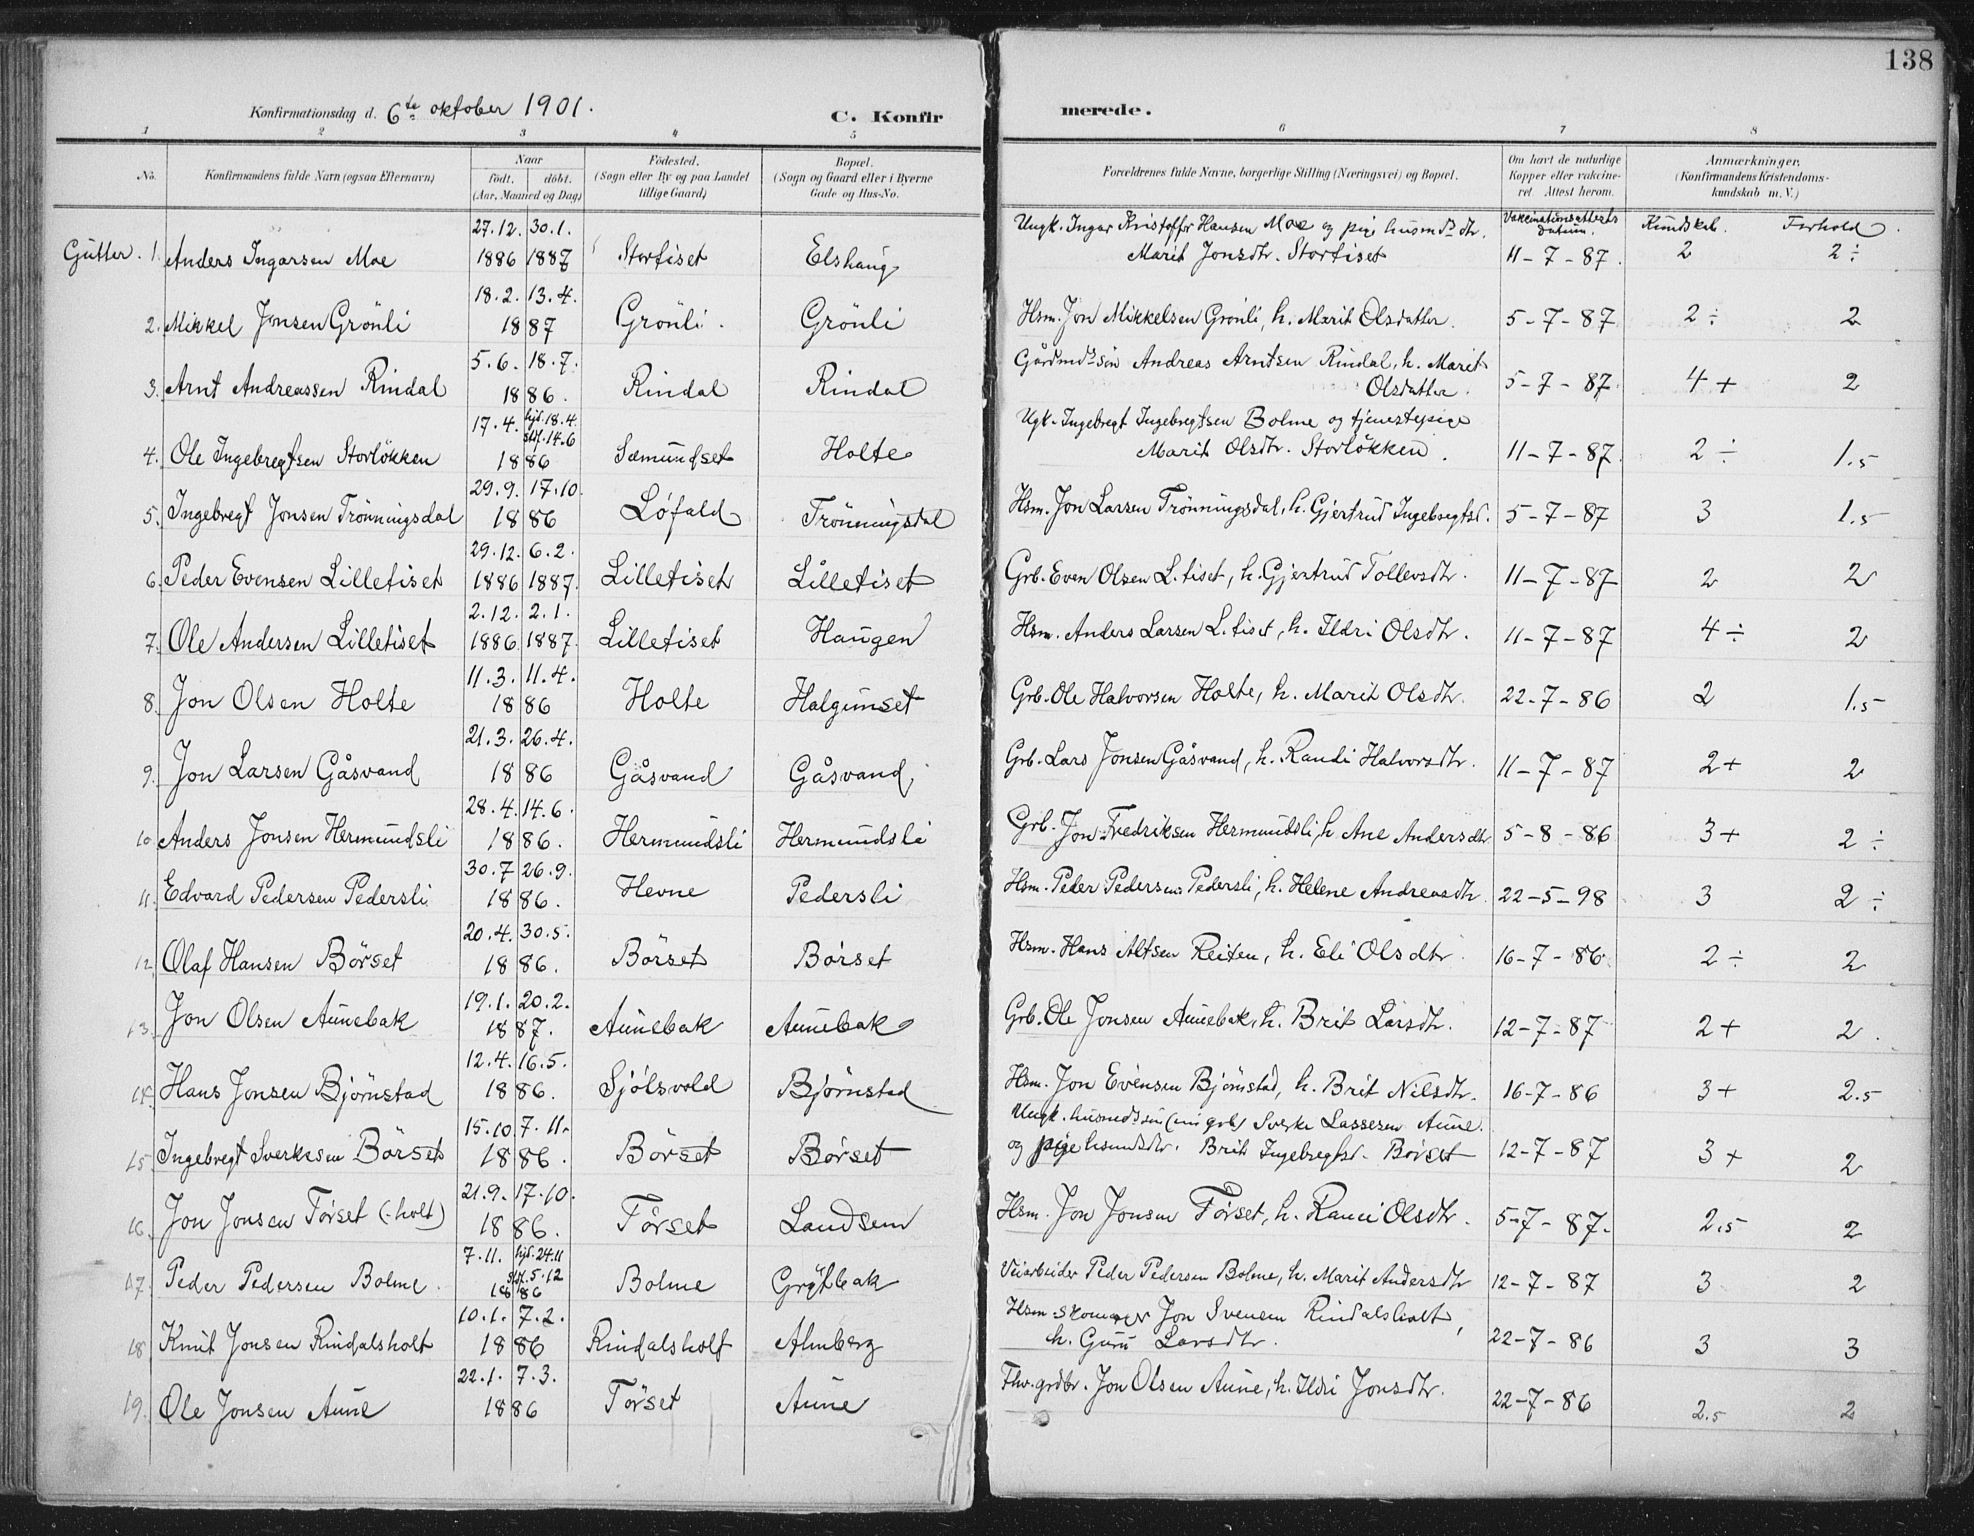 138
Konfirmationsdag d. 6te oktober 1901.
C. Konfirmerede.
1 2 3 4 5 6 7 8
No. Konfirmandens fulde Navn (ogsaa Efternavn) Naar født. døbt. (Aar, Maaned og Dag) Fødested. (Sogn eller By og paa Landet tillige Gaard) Bopæl. (Sogn og Gaard eller i Byerne Gade og Hus-No. Forældrenes fulde Navne, borgerlige Stilling (Næringsvei) og Bopæl. Om havt de naturlige Kopper eller vakcineret. Attest herom. Anmærkninger. (Konfirmandens Kristendomskundskab m. V.)
Vakcinationsattests Datum. Kundskab. Forhold.
Gutter. 1. Anders Ingarsen Moe 27.12. 1886 30.1. 1887 Storfiset Elshaug Ungk. Ingar Kristoffer Hansen Moe og pige husmds dtr. Marit Jonsdtr. Storfiset 11-7-87. 2 2÷
2. Mikkel Jonsen Grönli 18.2. 13.4. 1887 Grönli. Grönli Hsm. Jon Mikkelsen Grönli, h. Marit Olsdatter. 5-7-87 2÷ 2
3. Arnt Andreassen Rindal 5.6. 18.7. 1886. Rindal Rindal Gårdmds sön Andreas Arntsen Rindal, h. Marit Olsdatter. 5-7-87. 4+ 2
4. Ole Ingebregtsen Storlökken 17.4. hjd. 18.4. stf. 14.6 1886 Sæmundset Holte Ugk. Ingebregt Ingebregtsen Bolme og tjenestepige Marit Olsdtr. Storlökken. 11-7-87. 2÷ 1.5
5. Ingebregt Jonsen Trönningsdal 29.9. 17.10. 1886 Löfald Trönningsdal Hsm. Jon Larsen Trönningsdal, h. Gjertrud Ingebregtsd. 5-7-87 3 1.5
6. Peder Evensen Lilletiset 29.12. 1886 6.2. 1887. Lilletiset Lilletiset Grb. Even Olsen L.tiset, h. Gjertrud Tollevsdtr. 11-7-87 2 2
7. Ole Andersen Lilletiset 2.12. 1886 2.1. 1887. Lilletiset Haugen Hsm. Anders Larsen L.tiset, h. Ildri Olsdtr. 11-7-87 4÷ 2
8. Jon Olsen Holte 11.3. 11.4. 1886 Holte Halgunset Grb. Ole Halvorsen Holte, h. Marit Olsdtr. 22-7-86 2 1.5
9. Jon Larsen Gåsvand 21.3. 26.4. 1886 Gåsvand Gåsvand Grb. Lars Jonsen Gåsvand, h. Randi Halvorsdtr. 11-7-87 2+ 2
10 Anders Jonsen Hermundsli 28.4. 14.6. 1886. Hermundsli Hermundsli Grb. Jon Fredriksen Hermundsli, h. Ane Andersdtr 5-8-86 3+ 2÷
11. Edvard Pedersen Pedersli 30.7 26.9. 1886. Hevne Pedersli Hsm. Peder Pedersen Pedersli, h. Helene Andreasdtr. 22-5-98 3 2÷
12. Olaf Hansen Börset 20.4. 30.5. 1886. Börset Börset Hsm. Hans Altsen Reiten, h. Eli Olsdtr. 16-7-86 2÷ 2
13. Jon Olsen Aunebak 19.1. 20.2. 1887. Aunebak Aunebak Grb. Ole Jonsen Aunebak, h. Brit Larsdtr. 12-7-87 2+ 2.
14. Hans Jonsen Björnstad 12.4. 16.5. 1886. Sjölsvold Björnstad Hsm. Jon Evensen Björnstad, h. Brit Nilsdtr. 16-7-86 3+ 2.5
15 Ingebregt Sverkesen Börset 15.10. 7.11. 1886. Börset Börset Ungk. husmds sön (nu grb) Sverke Lassesen Aune. og pige husmdsdtr. Brit Ingebregtsd. Börset 12-7-87 3+ 2
16. Jon Jonsen Törset (-holt) 21.9. 17.10. 1886. Törset Landsem Hsm. Jon Jonsen Törset, h. Randi Olsdtr. 5-7-87. 2.5 2
17. Peder Pedersen Bolme. 7.11. hjd. 24.11 stf. 5.12 1886 Bolme Grytbak Veiarbeider Peder Pedersen Bolme, h. Marit Andersdtr 12-7-87 3 2
18. Knut Jonsen Rindalsholt 10.1. 7.2. 1886 Rindalsholt Almberg Hsm. skomager Jon Svensen Rindalsholt, h. Guru Larsdtr. 22-7-86 3 3
19. Ole Jonsen Aune 22.1. 7.3. 1886 Törset Aune Fhv. grdbr. Jon Olsen Aune, h. Ildri Jonsdtr. 22-7-86 2.5 2